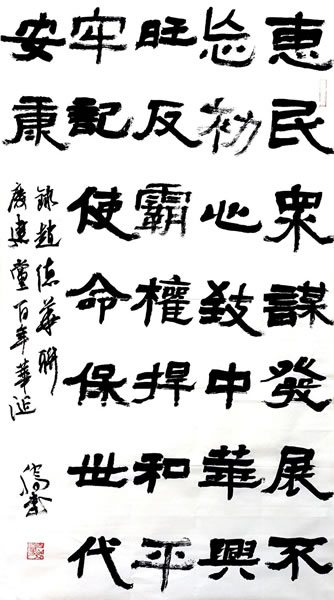 惠民衆謀發展不
忘初心致中華興
旺反霸權捍和平
牢記使命保世代
安康
錄趙德華聯
慶建黨百年華誕